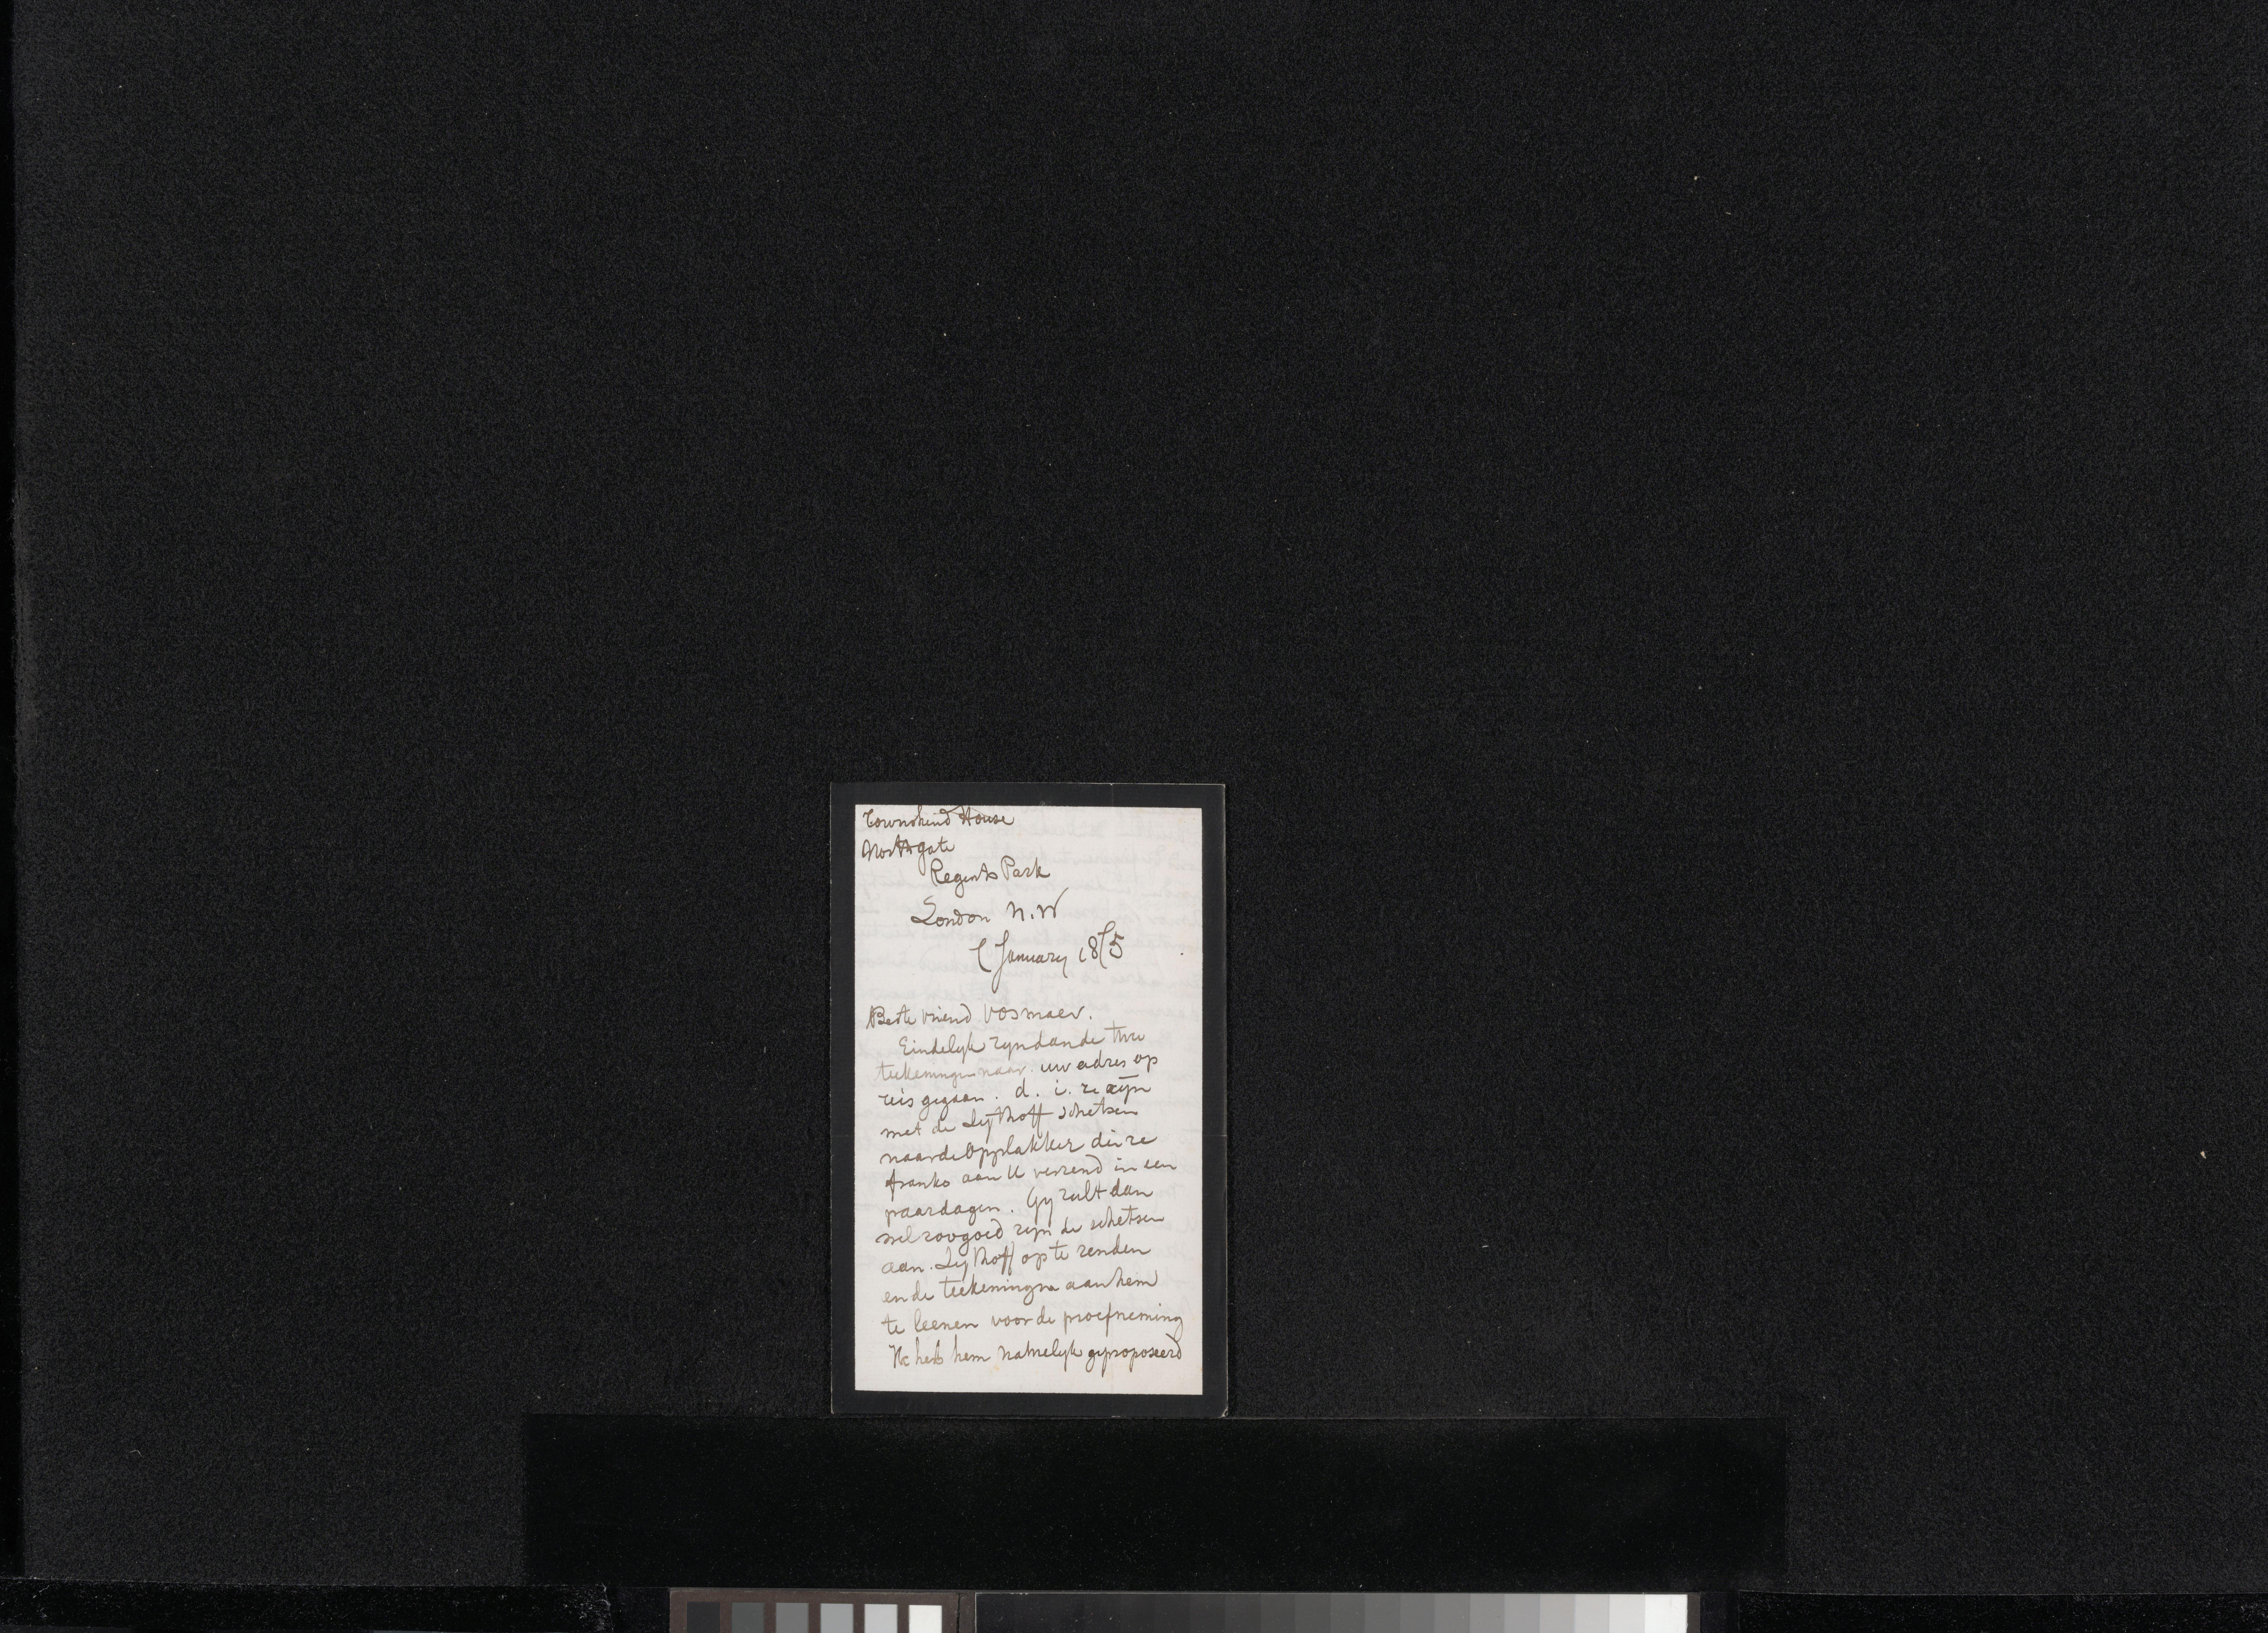 Townshend House
Northgate
Regents Park
London N.W
7 January 1875
Beste vriend Vosmaer.
Eindelyk zyn dan de twee
teekeningen naar uw adres op
reis gegaan. d. i. ze zijn
met de Sijthoff schetsen
naar de Opplakker die ze
franko aan U verzend in een
paar dagen. Gy zult dan
wel zoo goed zyn de schetsen
aan Sijthoff op te zenden
en de teekeningen aan hem
te leenen voor de proefneming
Ik heb hem namelyk geproposeerd